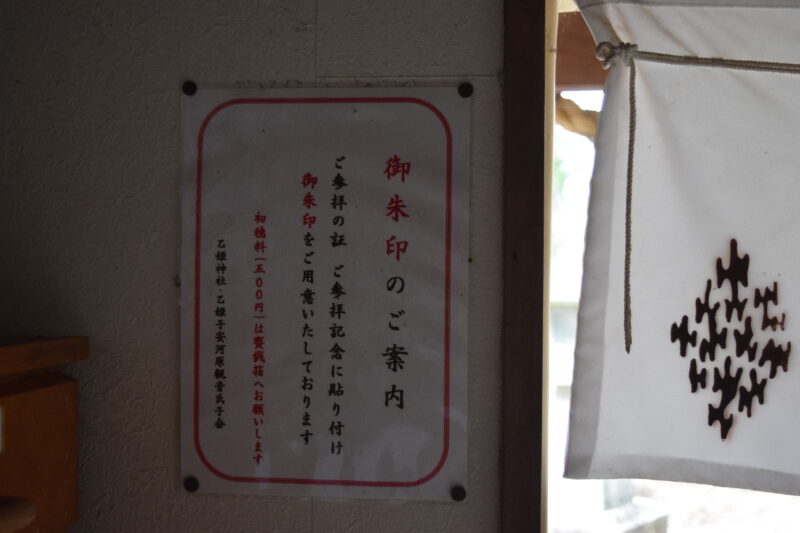 御朱印のご案内
ご参拝の証　ご参拝記念に貼り付け
御朱印をご用意いたしております
初穂料（五００円）は賽銭箱へお願いします
乙姫神社・乙姫子安河原観音氏子会